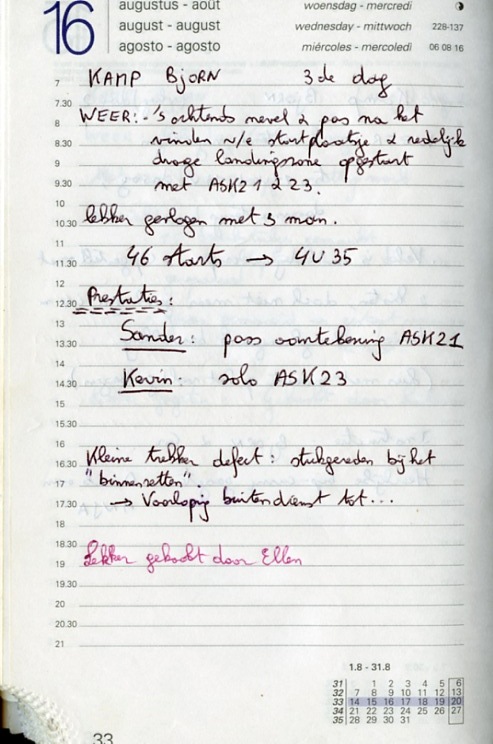 16
augustus - août
august - august
agosto - agosto
woensdag - mercredi
wednesday - mittwoch 228-137
miércoles - mercoledì 06 08 16
7 KAMP BJORN 3de dag
7.30 WEER: - 's ochtends nevel & pas na het
8 vinden v/e startplaatsje & redelijk
8.30 droge landingszone opgestart
9
9.30 met ASK21 & 23.
10
10.30 lekker gevlogen met 3 man.
11
11.30 46 starts → 4U35
12
12.30 Prestaties:
13
13.30 Sander: pass aantekening ASK21
14
14.30 Kevin: solo ASK23
15
15.30
16
16.30 Kleine trekker defect: stukgereden bij het
17 "binnenzetten".
17.30 → Voorlopig buitendienst tot...
18
18.30
19 Lekker gekookt door Ellen
19.30
20
20.30
21
1.8 - 31.8
31 1 2 3 4 5 6
32 7 8 9 10 11 12 13
33 14 15 16 17 18 19 20
34 21 22 23 24 25 26 27
35 28 29 30 31
33